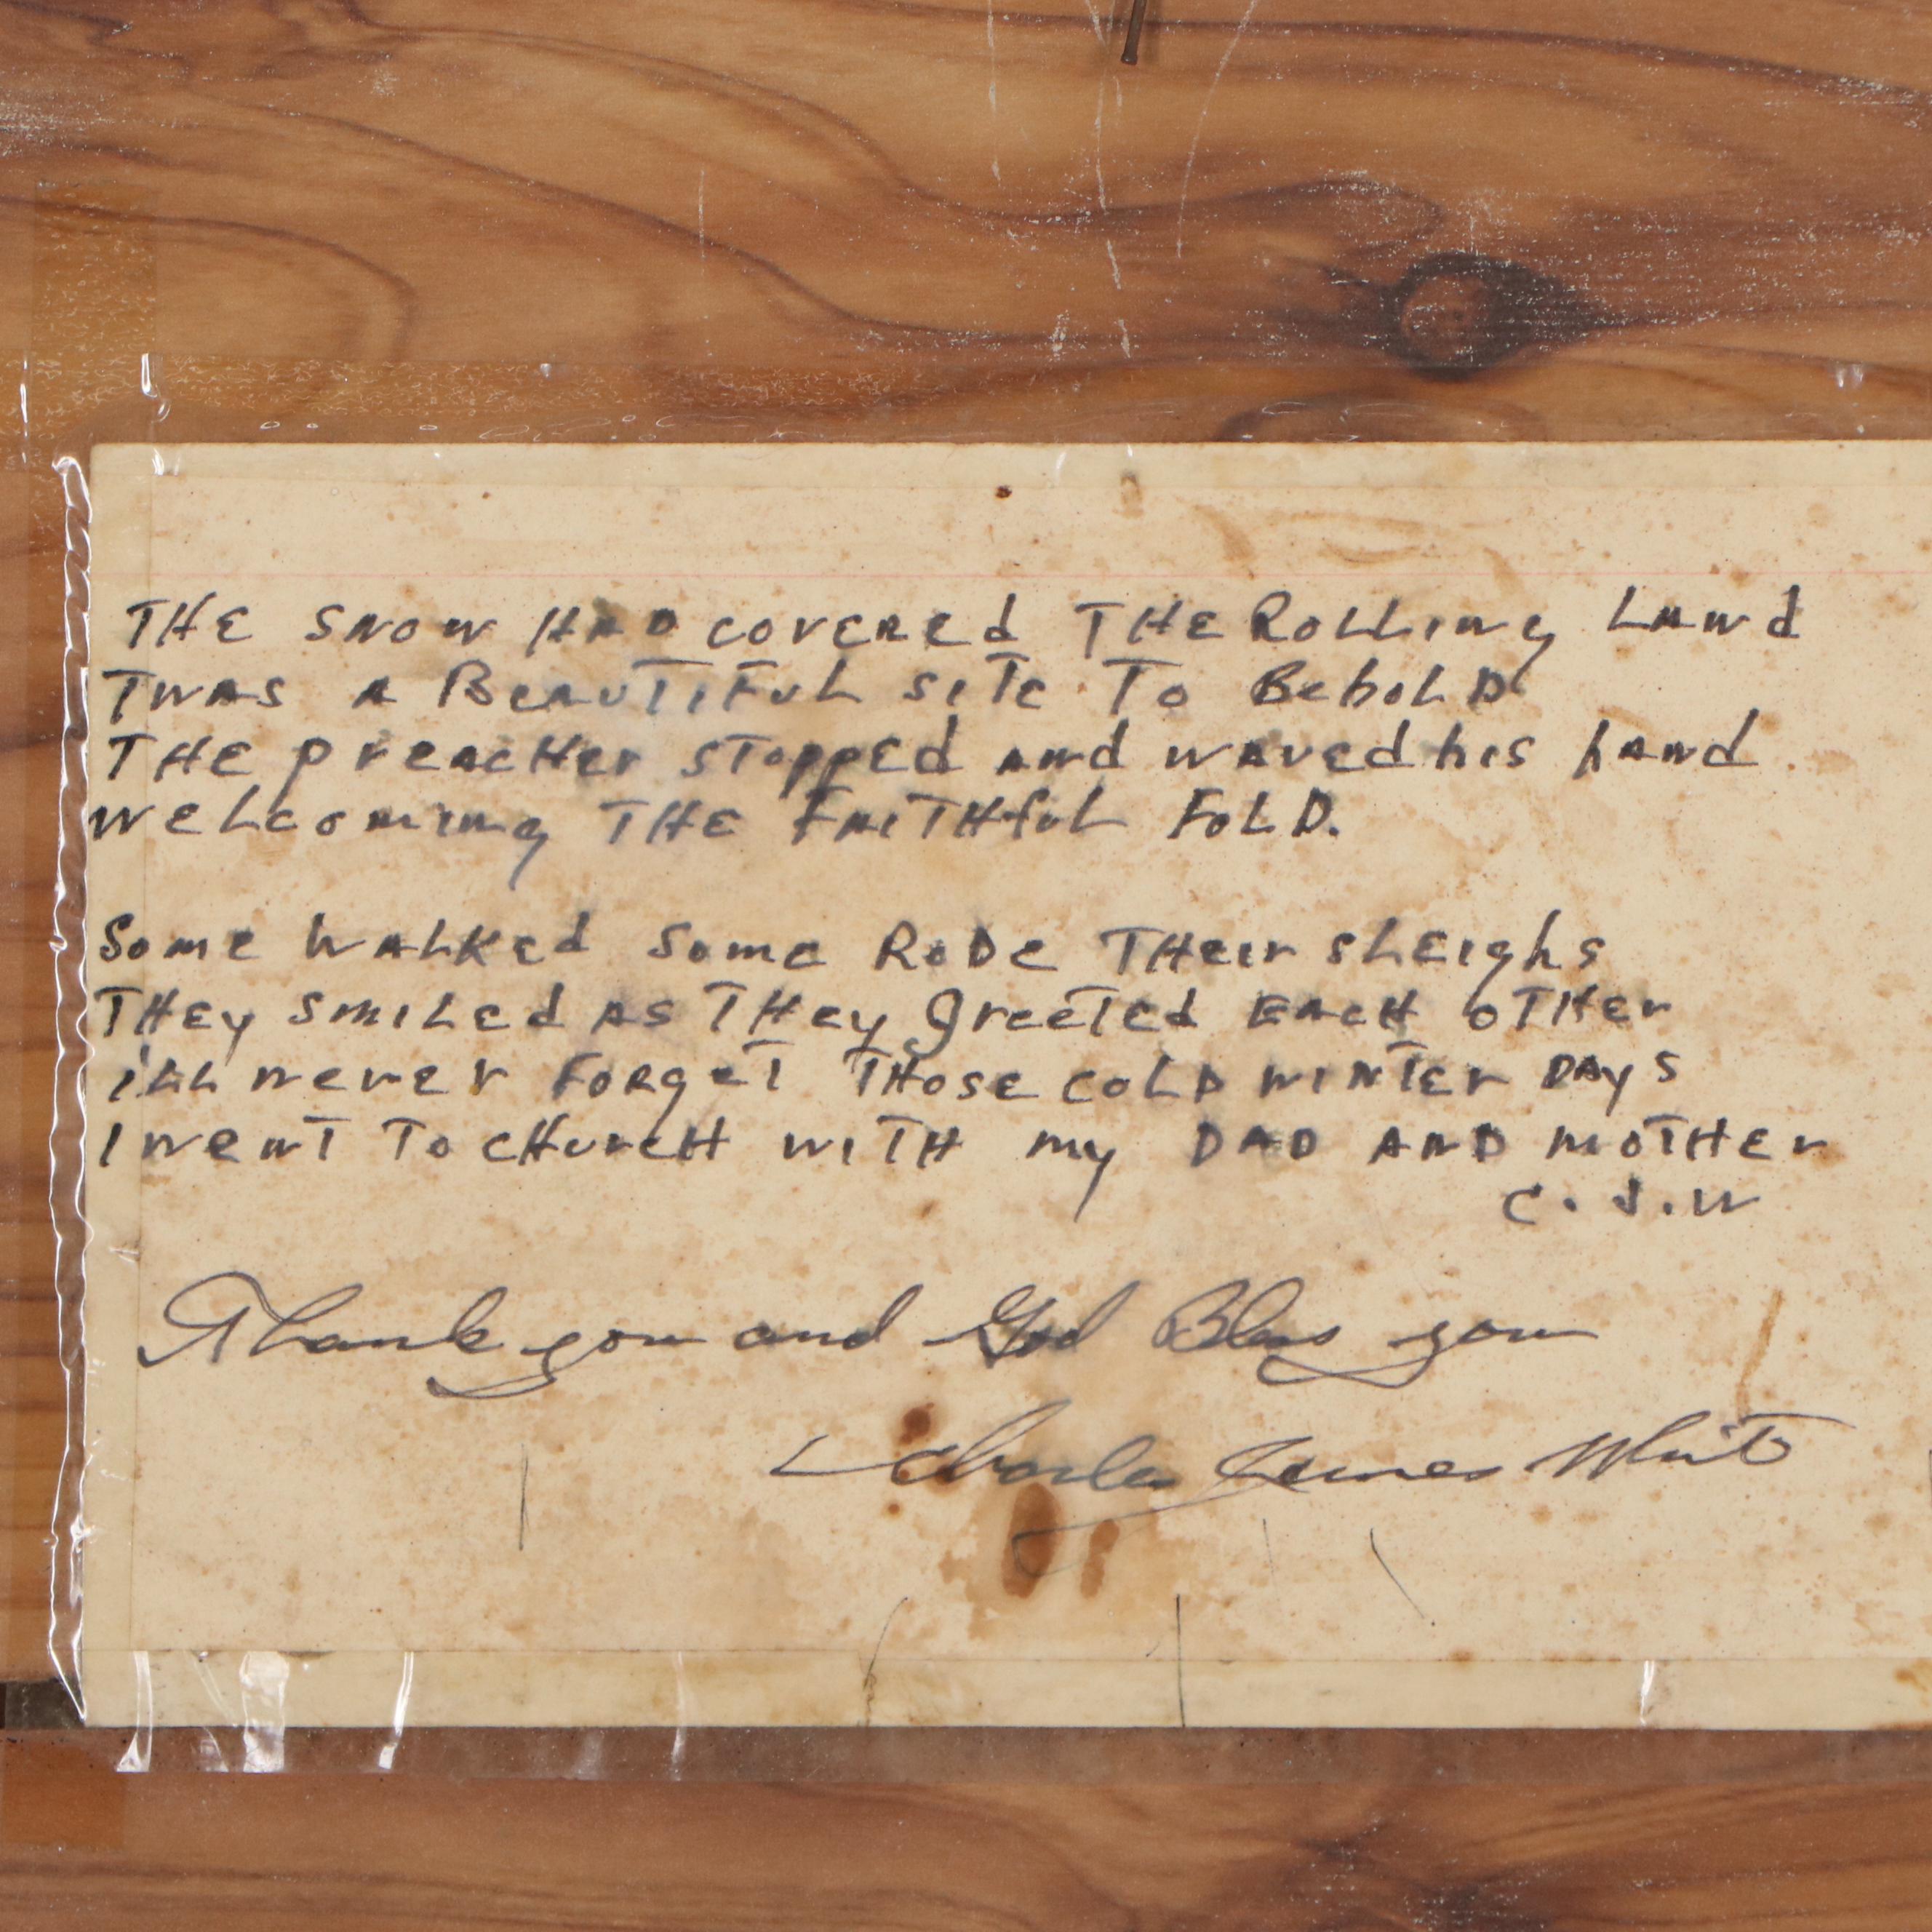 THE SNOW HAD COVERED THE ROLLING LAND
TWAS A BEAUTIFUL SITE TO BEHOLD
THE PREACHER STOPPED AND WAVED his hAND.
WELCOMING THE FAITHFUL FOLD.
SOME WALKED SOME RODE THEIR SLEIGHS
THEY SMILED AS THEY GREETED EACH OTHER
I'LL NEVER FORGET THOSE COLD WINTER DAYS
I WENT TO CHURCH WITH MY DAD AND MOTHER
C. J. W
Thank you and God Bless you
Charles James White